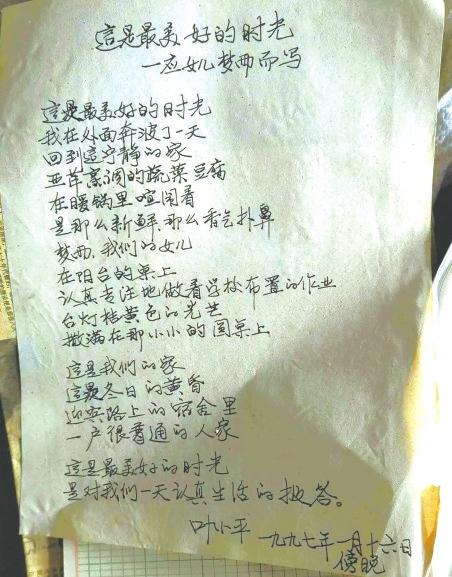 這是最美好的时光
一应女儿梦西而写
這是最美好的时光
我在外面奔波了一天
回到這宁静的家
亚萍烹调的蔬菜豆腐
在暖锅里喧闹着
是那么新鲜,那么香气扑鼻
梦西,我们的女儿
在阳台的桌上
认真专注地做着学校布置的作业
台灯桔黄色的光芒
撒满在那小小的圆桌上
這是我们的家
這是冬日的黄昏
迎宾路上的宿舍里
一户很普通的人家
這是最美好的时光
是对我们一天认真生活的报答。
叶小平 一九九七年一月十六日
傍晚